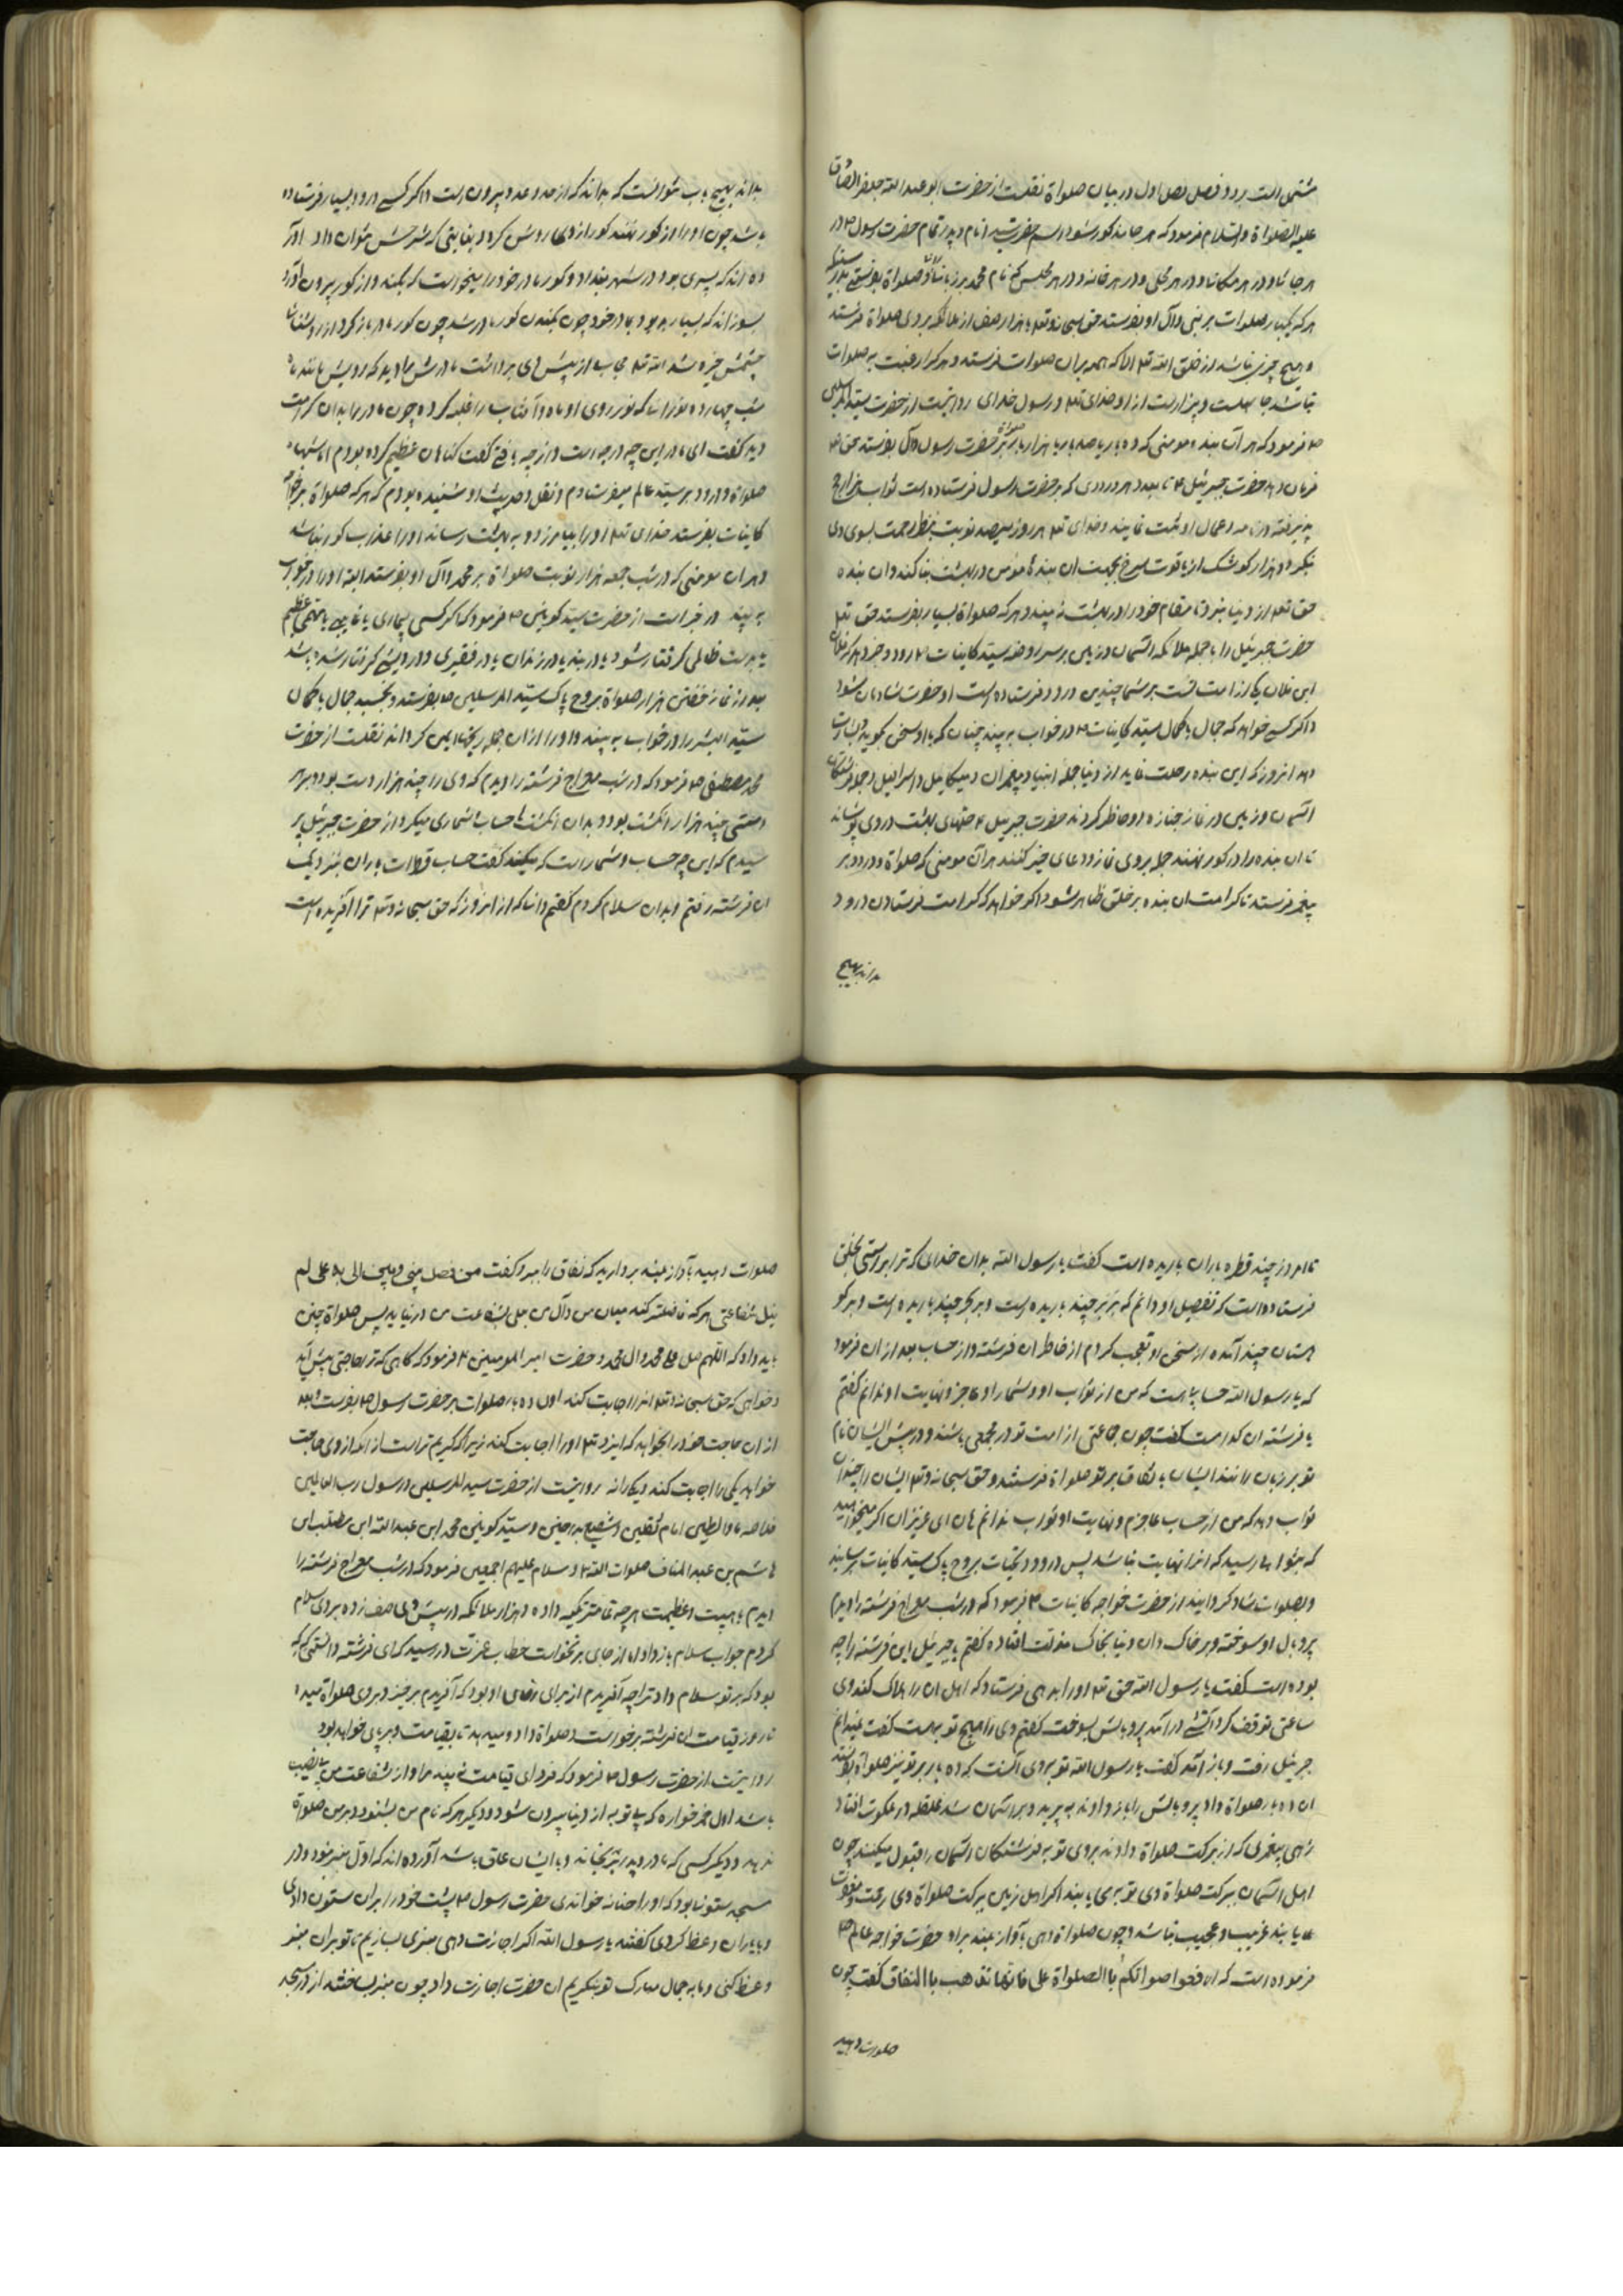 مشتمل است بر دو فصل فصل اول در بیان صلواة نقلست از حضرت ابو عبد الله جعفر الصادق
علیه الصلواة والسلام فرمود که هر جا مذکور شود اسم حضرت سید انام و بدر تمام حضرت رسول ص در
هر جا شاو در هر مکانا و در هر محلی و در هر خانه و در هر مجلس که نام محمد بر زبان صلواة بفرستی
هر که یکبار صلوات بر نبی و آل او بفرستد حق سبحانه وتع با هزار صف از ملائکه بر وی صلواة فرستد
و هیچ چیزی نباشد از خلق الله تع الا که همه بران صلوات فرستد و هر کرا رغبت به صلوات
نباشد جاهلست و بیزارست از او خدای تع و رسول خدای روایتست از حضرت سید المرسلین
ص فرمود که هر آن بنده مومنی که ده بار یا صد بار یا هزار بار بر حضرت رسول و آل بفرستد حق تع
فرمان دهد حضرت جبرئیل ع تا بعدد هر درودی که بر حضرت رسول فرستاده است ثواب
پذیرفته در نامه وعمال او ثبت نمایند و خدای تع هر روز سیصد نوبت بنظر رحمت بسوی وی
نگرد و هزار کوشک از یاقوت سرخ بجهت ان بندهٔ مؤمن در بهشت بنا کند و ان بنده
حق تع از دنیا نبرد تا مقام خود را در بهشت نه بیند و هر که صلواة بسیار بفرستد حق تع
حضرت جبرئیل را با جمله ملائکه اسمان و زمین بر سر روضه سید کاینات ص رود و خبر دهد که فلان
ابن فلان یکی از امت تست بر شما چندین درود فرستاده است او حضرت شادمان شود
و اگر کسی خواهد که جمال با کمال سید کاینات ص در خواب به بیند چنان که با او سخن گوید و بشارت
دهد انروز که این بنده رحلت نماید از دنیا جمله انبیا و پیغمبران و میکائیل و اسرافیل و جمله فرشتگان
اسمان و زمین در نماز جنازه او حاظر گردند حضرت جبرئیل ع حلهای بهشت در وی پوشاند
تا ان بنده را در کور نهند جمله بر وی نماز و دعای خیر کنند هر آن مومنی که صلواة و درود بر
پیغمبر فرستد تا کرامت ان بنده بر خلق ظاهر شود اگر خواهد که کرامت فرستادن درود
بداند بهیچ
بداند بهیچ باب نتوانست که بداند که از حد و عدد بیرون است و اگر کسی درود بسیار فرستاده
باشد چون او را در کور نهند کور از وی روشن کردد بغایتی که شرحش نتوان داد اور
ده اند که پسری بود در شهر بغداد و کور مادر خود را میخواست که بکند و از کور بیرون آورد
بسوزاند که بسیار بد بود با مادر خود چون بکندن کور مادر شد چون کور مادر باز کرد از روشنائی
چشمش خیره شد الله تع حجاب از پیش وی برداشت مادرش را دید که رویش مانند ماه
شب چهارده نورانی که نور روی او ماه و آفتاب را غلبه کرده چون مادر را بدان کرامت
دید گفت ای مادر این چه درجه است و از چه یافتی گفت گناهان عظیم کرده بودم اما شبها
صلواة و درود بر سید عالم میفرستادم و نقل و حدیث او شنیده بودم که هر که صلواة بر خواجه
کاینات بفرستد خدای تع او را بیامرزد و به بهشت رساند او را عذاب کور نباشد
و هران مومنی که در شب جمعه هزار نوبت صلواة بر محمد و آل او بفرستد البته او را در خواب
به بیند در خبر است از حضرت سید کونین ص فرمود که اگر کسی بیماری یا غایبی یا مهمی عظیم
یا بدست ظالمی گرفتار شود یا در بند یا در زندان یا در فقیری و درویشی گرفتار شده باشد
بعد از نماز خفتن هزار صلواة بروح پاک سید المرسلین ص بفرستد و بخسبد جمال با کمال
سید البشر را در خواب به بیند و او را از ان همه رنجها ایمن گرداند نقلست از حضرت
محمد مصطفی ص فرمود که در شب معراج فرشته را دیدم که وی را چند هزار دست بود و بهر
دستی چند هزار انگشت بود و بدان انگشت ها حساب شماری میکرد از حضرت جبرئیل پر
سیدم که این چه حساب و شمار است که میکند گفت حساب قطرات باران نزدیک
ان فرشته رفتم و بدان سلام کردم گفتم دانا که از انروز که حق سبحانه وتع ترا آفریده است
تا امروز چند قطره باران باریده است گفت یا رسول الله بدان خدای که ترا براستی بخلق
فرستاده است که تفصیل او دانم که بر بر چند باریده است و بر بحر چند باریده است و بر کو
هستان چند آمده از سخن او تعجب کردم از خاطر ان فرشته و از حساب بعد از ان فرمود
که یا رسول الله حسابی است که من از ثواب او و شمار او عاجز و نهایت او ندانم گفتم
یا فرشته ان کدامست گفت چون جماعتی از امت تو در مجمعی باشند و در پیش ایشان نام
تو بر زبان رانند ایشان باتفاق بر تو صلواة فرستند و حق سبحانه وتع ایشان را چندان
ثواب دهد که من از حساب عاجزم و نهایت او ثواب ندانم هان ای عزیزان اگر میخواهید
که بثوابها رسید که انرا نهایت نباشد پس درود و تحیات بروح پاک سید کاینات برسانید
و بصلوات شاد گردانید از حضرت خواجه کاینات ص فرمود که در شب معراج فرشته را دیدم
پر و بال او سوخته و بر خاک دان دنیا بخاک مذلت افتاده گفتم یا جبرئیل این فرشته را چه
بوده است گفت یا رسول الله حق تع او را بدهی فرستاد که اهل ان را هلاک کند وی
ساعتی توقف کرد آتشی درآمد پر و بالش بسوخت گفتم وی را هیچ توبه هست گفت نمیدانم
جبرئیل رفت و باز آمد گفت یا رسول الله توبه وی آنست که ده بار بر تو نیز صلواة بفرستد
ان ده بار صلواة داد پر و بالش را باز دادند به پرید و بر اسمان شد غلغله در ملکوت افتاد
زهی پیغمبری که از برکت صلواة دادند بر وی توبه فرشتگان اسمان را قبول میکنند چون
اهل اسمان ببرکت صلواة وی توبه می یابند اگر اهل زمین ببرکت صلواة وی رحمت و مغفرت
یابند غریب و عجیب نباشد و چون صلواة دهی بآواز بلند براد حضرت خواجه عالم ص
فرموده است که ارفعوا اصواتکم باالصلواة علی فانها تذهب باالنفاق گفت چون
صلوات دهید
صلوات دهید بآواز بلند بردارید که نفاق را ببرد و گفت من فصل بینی و بین الی بد علی لم
ینل شفاعتی هر که فاصله کند میان من و آل من بعلی بشفاعت من در نیاید پس صلواة چنین
باید داد که اللهم صل علی محمد وال محمد و حضرت امیر المومنین ع فرمود که گاهی که ترا حاجتی پیش آید
و خواهی که حق سبحانه وتع انرا اجابت کند اول ده بار صلوات بر حضرت رسول ص بفرست و بعد
از ان حاجت خود را بخواهد که ایزد تع او را اجابت کند زیرا که کریم تر است از انکه از وی حاجت
خواهد یکی را اجابت کند دیگر را نه روایتست از حضرت سید المرسلین و رسول رب العالمین
خلاصه ماء والطین امام ثقلین و شفیع دارین و سید کونین محمد ابن عبد الله ابن مطلب ابن
هاشم بن عبد المناف صلوات الله و سلام علیهم اجمعین فرمود که در شب معراج فرشته را
دیدم با هیبت و عظمت هر چه تمامتر تکیه داده و هزار ملائکه در پیش وی صف زده بر وی سلام
کردم جواب سلام باز داد اما از جای برنخواست خطاب عزت در رسید که ای فرشته دانستی که
بود که بر تو سلام داد ترا چه آفریدم از برای رضای او بود که آفریدم برخیز و بر وی صلواة میده
تا روز قیامت ان فرشته برخواست و صلواة داد و میدهد تا بقیامت و بر پای خواهد بود
روایتست از حضرت رسول ص فرمود که فردای قیامت نه بیند مرا و از شفاعت من بی نصیب
باشد اول خمر خواره که بی توبه از دنیا بیرون شود و دیگر هر که نام من بشنود و بر من صلواة
ندهد و دیگر کسی که مادر و پدر برنجاند و با ایشان عاق باشد آورده اند که اول منبر نبود و در
مسجد ستونها بود که او را حنانه خواندی حضرت رسول ص پشت خود را بران ستون دادی
و با یاران وعظ کردی گفتند یا رسول الله اگر اجازت دهی منبری بسازیم تا تو بران منبر
وعظ کنی و ما به جمال مبارک تو بنگریم ان حضرت اجازت داد چون منبر بساختند از در مسجد